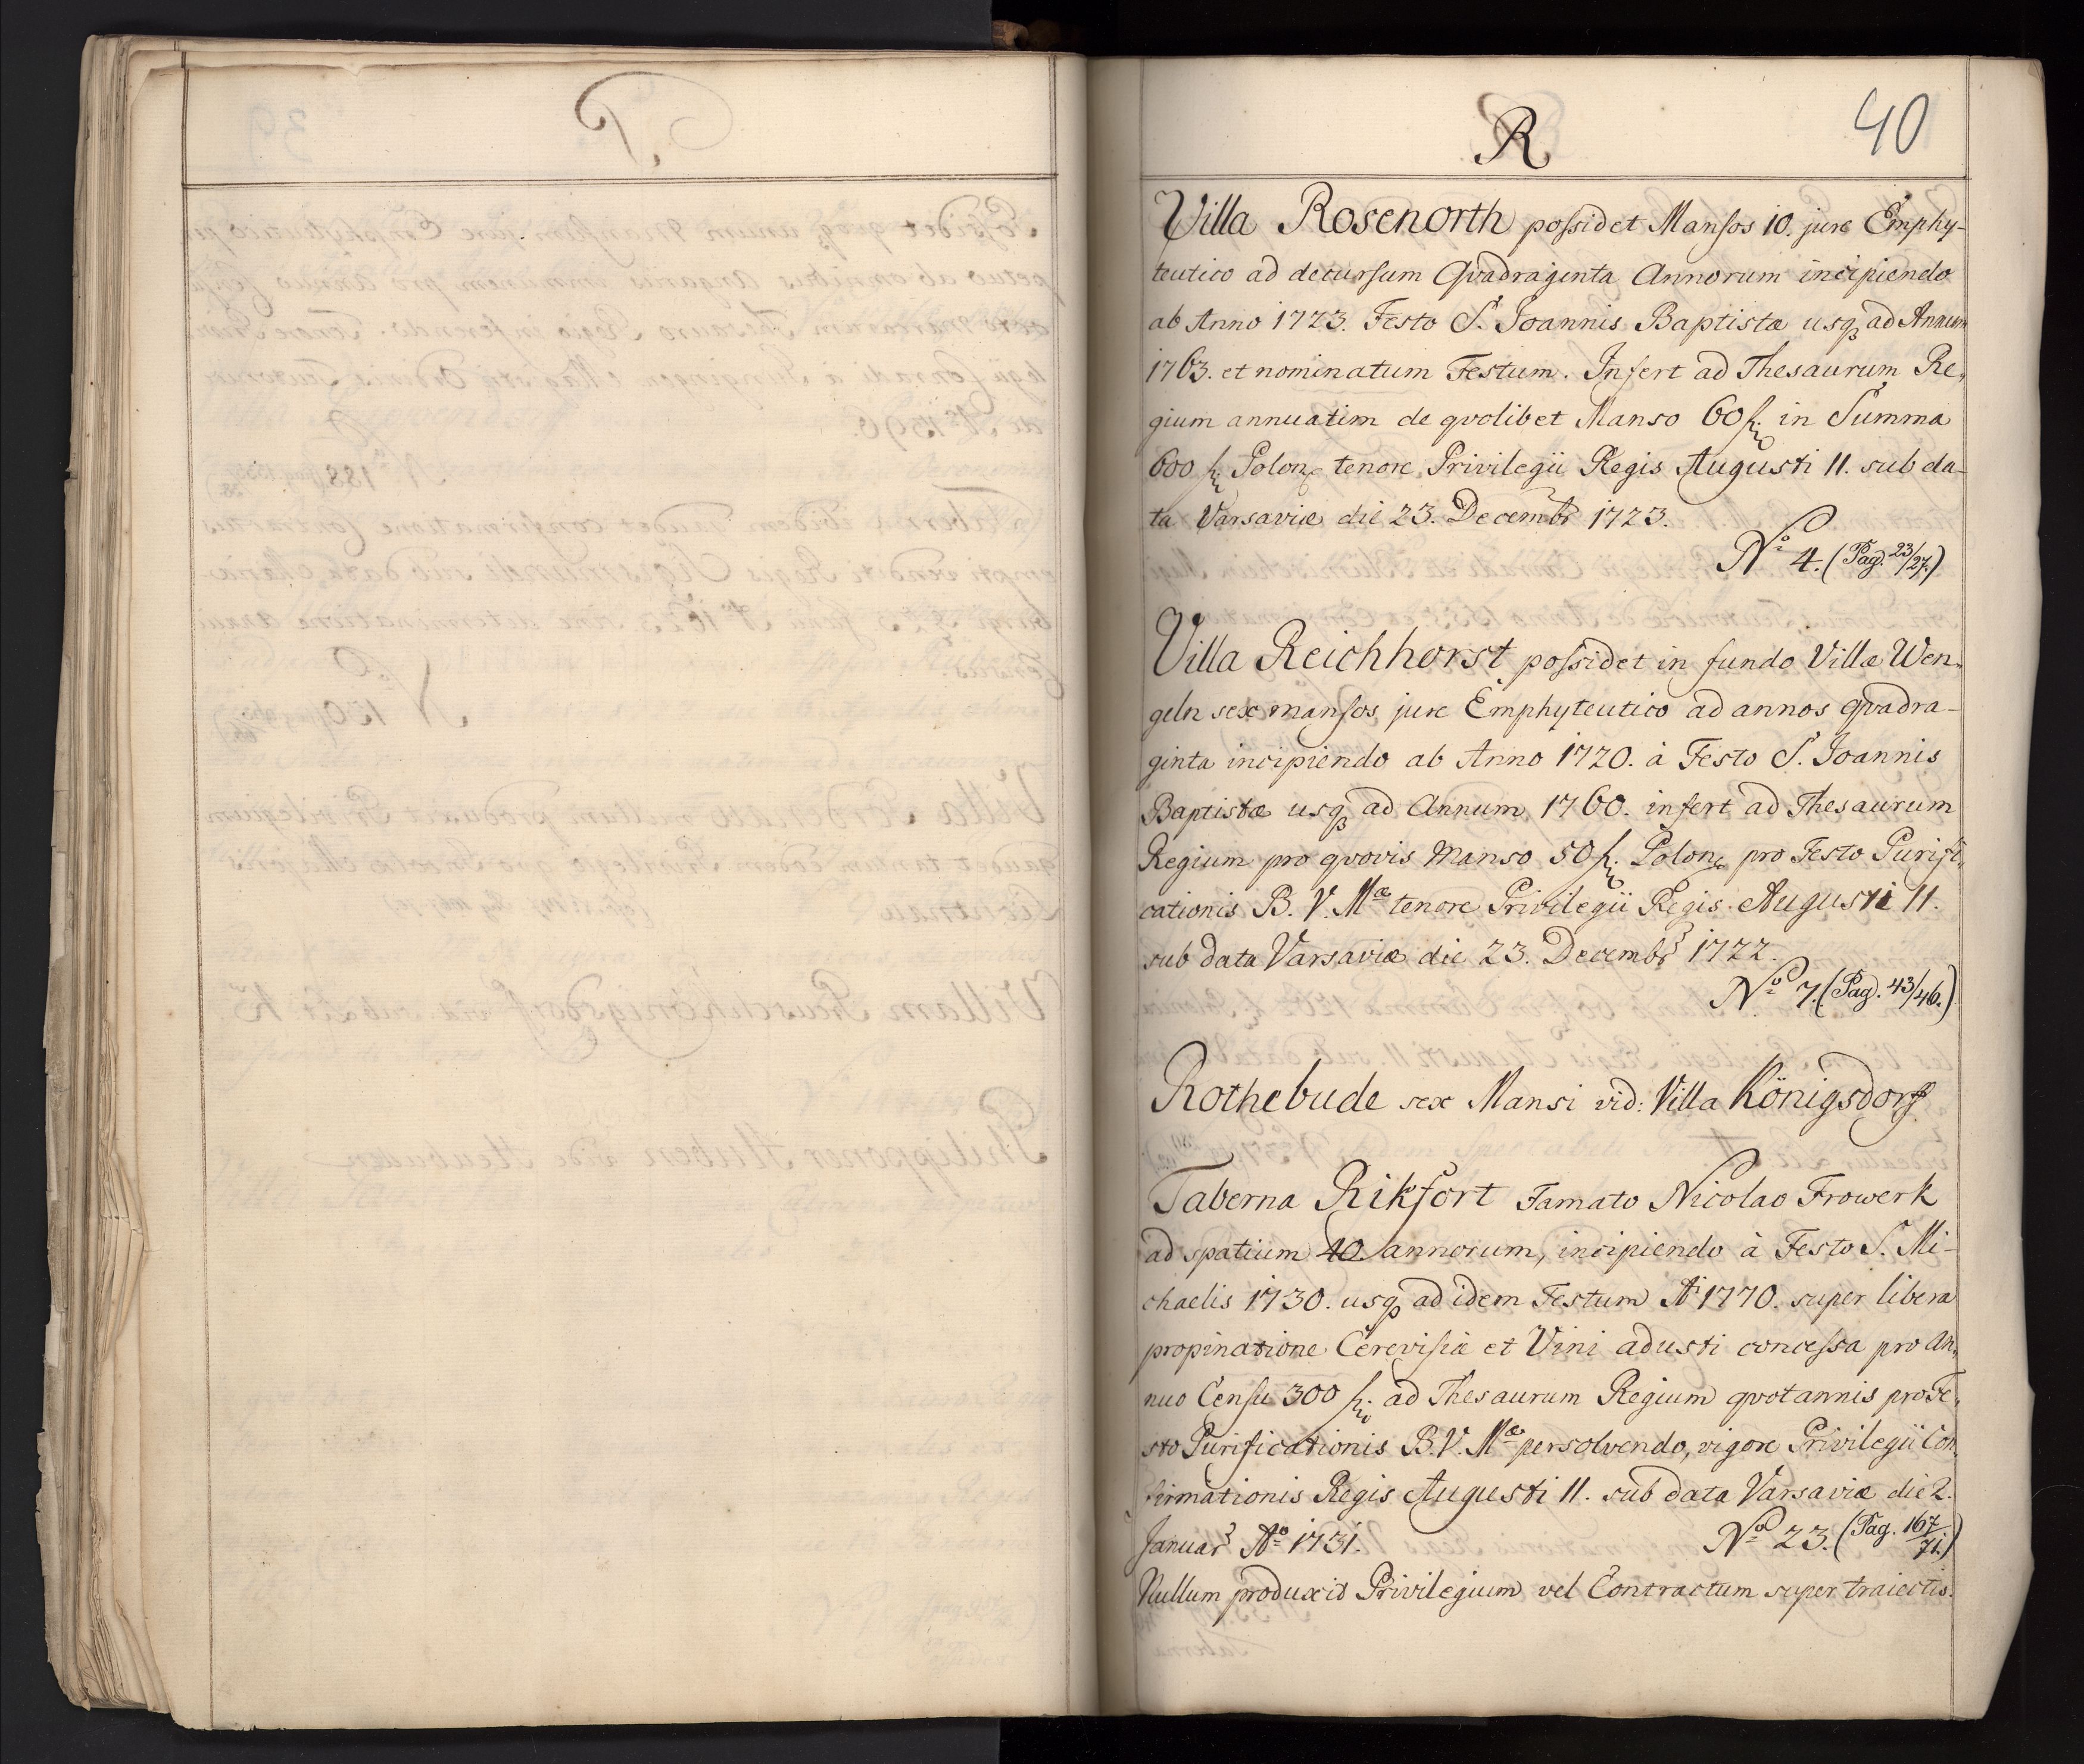 R
40
Villa Rosenorth possidet Mansos 10. jure Emphy-
teutico ad decursum Qvadraginta Annorum incipiendo
ab Anno 1723. Festo S. Joannis Baptistæ usqꝫ ad Annum
1763. et nominatum Festum. Infert ad Thesaurum Re-
gium annuatim de qvolibet Manso 60 f. in Summa
600 f. Polon. tenore Privilegii Regis Augusti II. sub da-
ta Varsaviæ die 23. Decembr 1723.
No 4. (Pag. 23/27.)
Villa Reichhorst possidet in fundo Villæ Wen-
geln sex mansos jure Emphyteutico ad annos qvadra-
ginta incipiendo ab Anno 1720. à Festo S. Joannis
Baptistæ usqꝫ ad Annum 1760. infert ad Thesaurum
Regium pro qvovis Manso 50 f. Polon. pro Festo Purifi-
cationis B. V. Mæ tenore Privilegii Regis Augusti II.
sub data Varsaviæ die 23. Decembr 1722.
No 7. (Pag. 43/46.)
Rothebude sex Mansi vid: Villa Königsdorff
Taberna Rikfort Famato Nicolao Frowerk
ad spatium 40 annorum, incipiendo à Festo S. Mi-
chaelis 1730. usqꝫ ad idem Festum Ai 1770. super libera
propinatione Cerevisiæ et Vini adusti concessa pro An-
nuo Censu 300 f. ad Thesaurum Regium qvotannis pro Fe-
sto Purificationis B. V. Mæ persolvendo, vigore Privilegii Con-
firmationis Regis Augusti II. sub data Varsaviæ die 2.
Januar Ao 1731.
No 23. (Pag. 167/71.)
Nullum produxit Privilegium vel Contractum super traiectis.